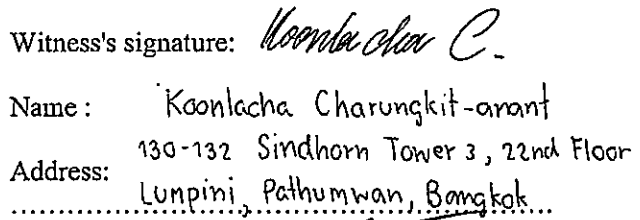 Witness's signature: Koonlacha C.
Name : Koonlacha Charungkit-anant
130-132 Sindhorn Tower 3, 22nd Floor
Address:
Lumpini, Pathumwan, Bangkok